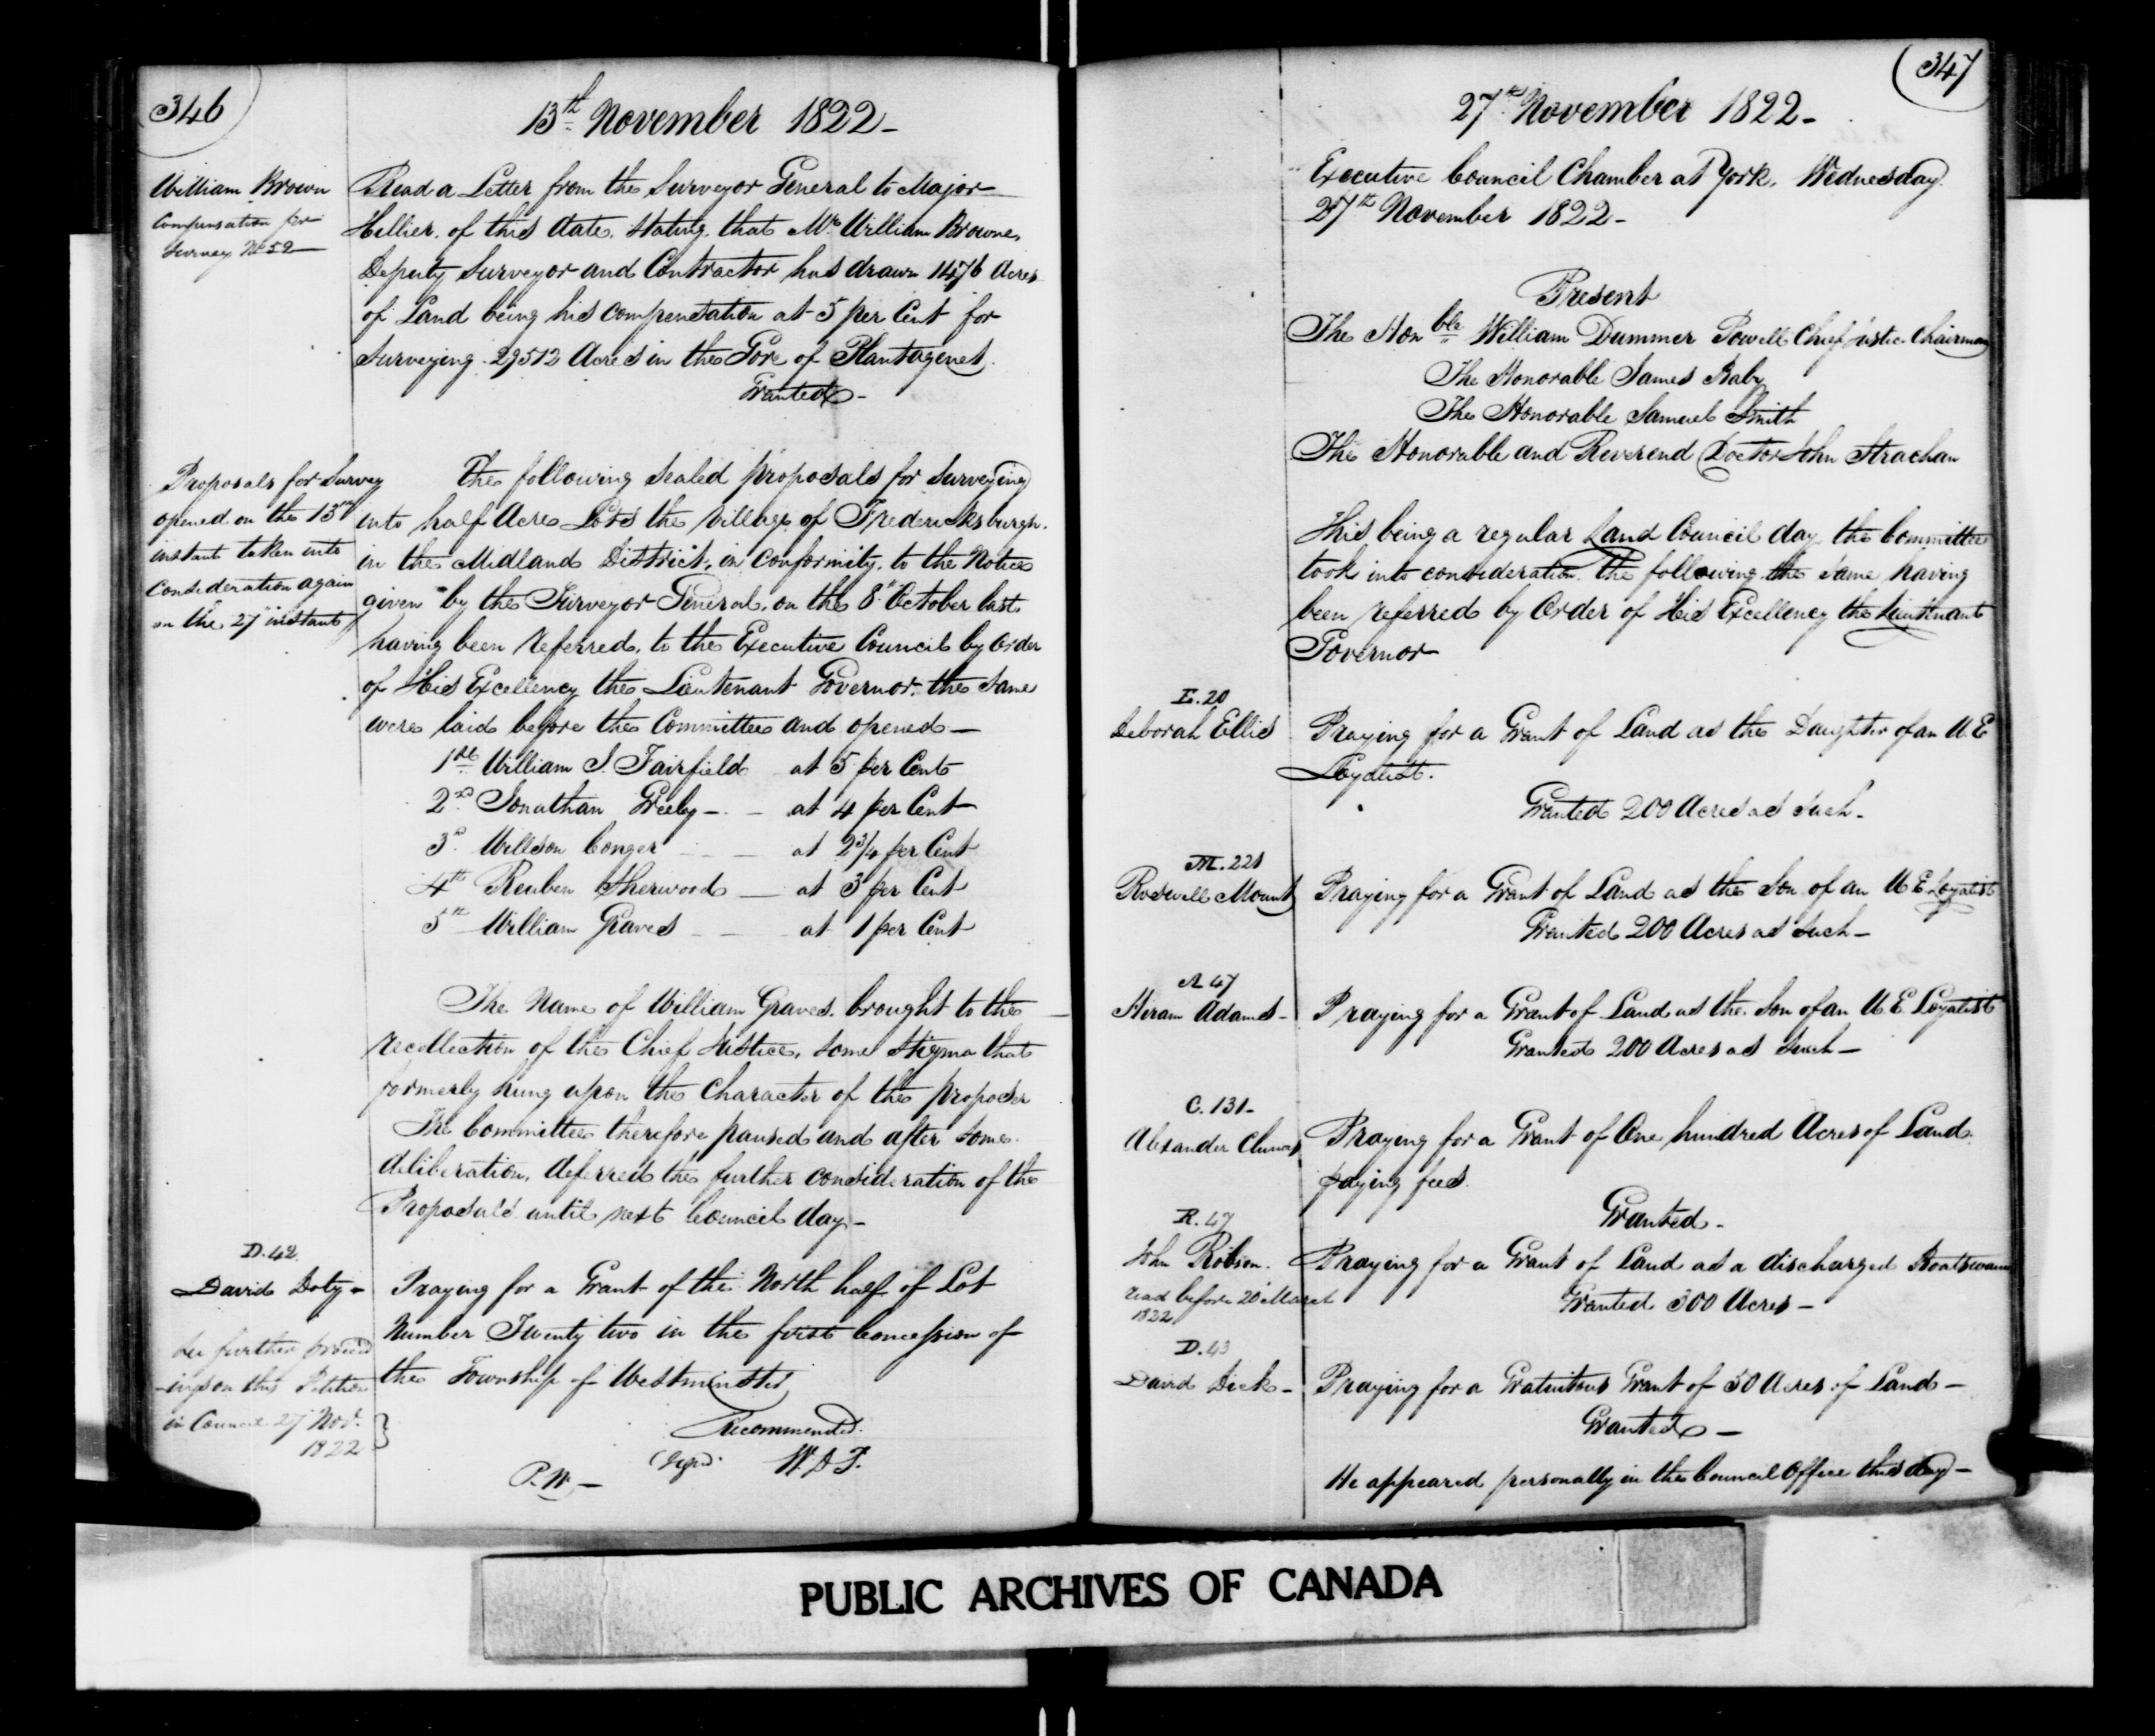 346
13th November 1822-
William Brown
Compensation for
Survey No 52
Read a Letter from the Surveyor General to Major
Hillier of this date, stating that Mr William Browne,
Deputy Surveyor and Contractor has drawn 1476 Acres
of Land being his compensation at 5 per Cent for
Surveying 29512 Acres in the Gore of Plantagenet.
Granted-
Proposals for Survey
opened on the 13th
instant taken into
Consideration again
on the 27th instant
The following sealed proposals for Surveying
into half Acre Lots the Village of Fredericksburgh.
in the Midland District, in conformity to the Notice
given by the Surveyor General, on the 8th October last
having been referred, to the Executive Council by Order
of His Excellency the Lieutenant Governor. the same
were laid before the Committee and opened-
1st William J. Fairfield at 5 per Cent
2nd Jonathan Greeley - - at 4 per Cent
3d Willson Conger - - at 2 3/4 per Cent
4th Reuben Sherwood - at 3 per Cent
5th William Graves - - at 1 per Cent
The Name of William Graves. brought to the
recollection of the Chief Justice, some stigma that
formerly hung upon the Character of the proposer
The Committee therefore paused and after some
deliberation, deferred the further consideration of the
Proposals until next Council day-
D. 42.
David Doty-
See further proceed
-ings on this Petition
in Council 27 Nov.
1822
Praying for a Grant of the North half of Lot
Number Twenty two in the first Concession of
the Township of Westminster
Recommended.
(Sign'd W. D. P.
P. M-
347
27th November 1822-
Executive Council Chamber at York, Wednesday
27th November 1822-
Present
The Honble William Dummer Powell Chief Justice Chairman
The Honorable James Baby
The Honorable Samuel Smith
The Honorable and Reverend Doctor John Strachan
This being a regular Land Council day the Committee
took into consideration the following the same having
been referred by Order of His Excellency the Lieutenant
Governor
E. 20
Deborah Ellis
Praying for a Grant of Land as the Daughter of an U. E
Loyalist.
Granted 200 Acres as such-
M. 221
Roswell Mount
Praying for a Grant of Land as the Son of an U E Loyalist
Granted 200 Acres as such-
A 47
Hiram Adams-
Praying for a Grant of Land as the Son of an U. E. Loyalist
Granted 200 Acres as such-
C. 131-
Alexander Clunas
Praying for a Grant of One hundred Acres of Land.
paying fees.
Granted-
R. 47
John Robson.
read before 20 March
1822
Praying for a Grant of Land as a discharged Boatswain
Granted 300 Acres-
D. 43
David Dick-
Praying for a Gratuitous Grant of 50 Acres of Land-
Granted-
He appeared personally in the Council Office this day-
PUBLIC ARCHIVES OF CANADA